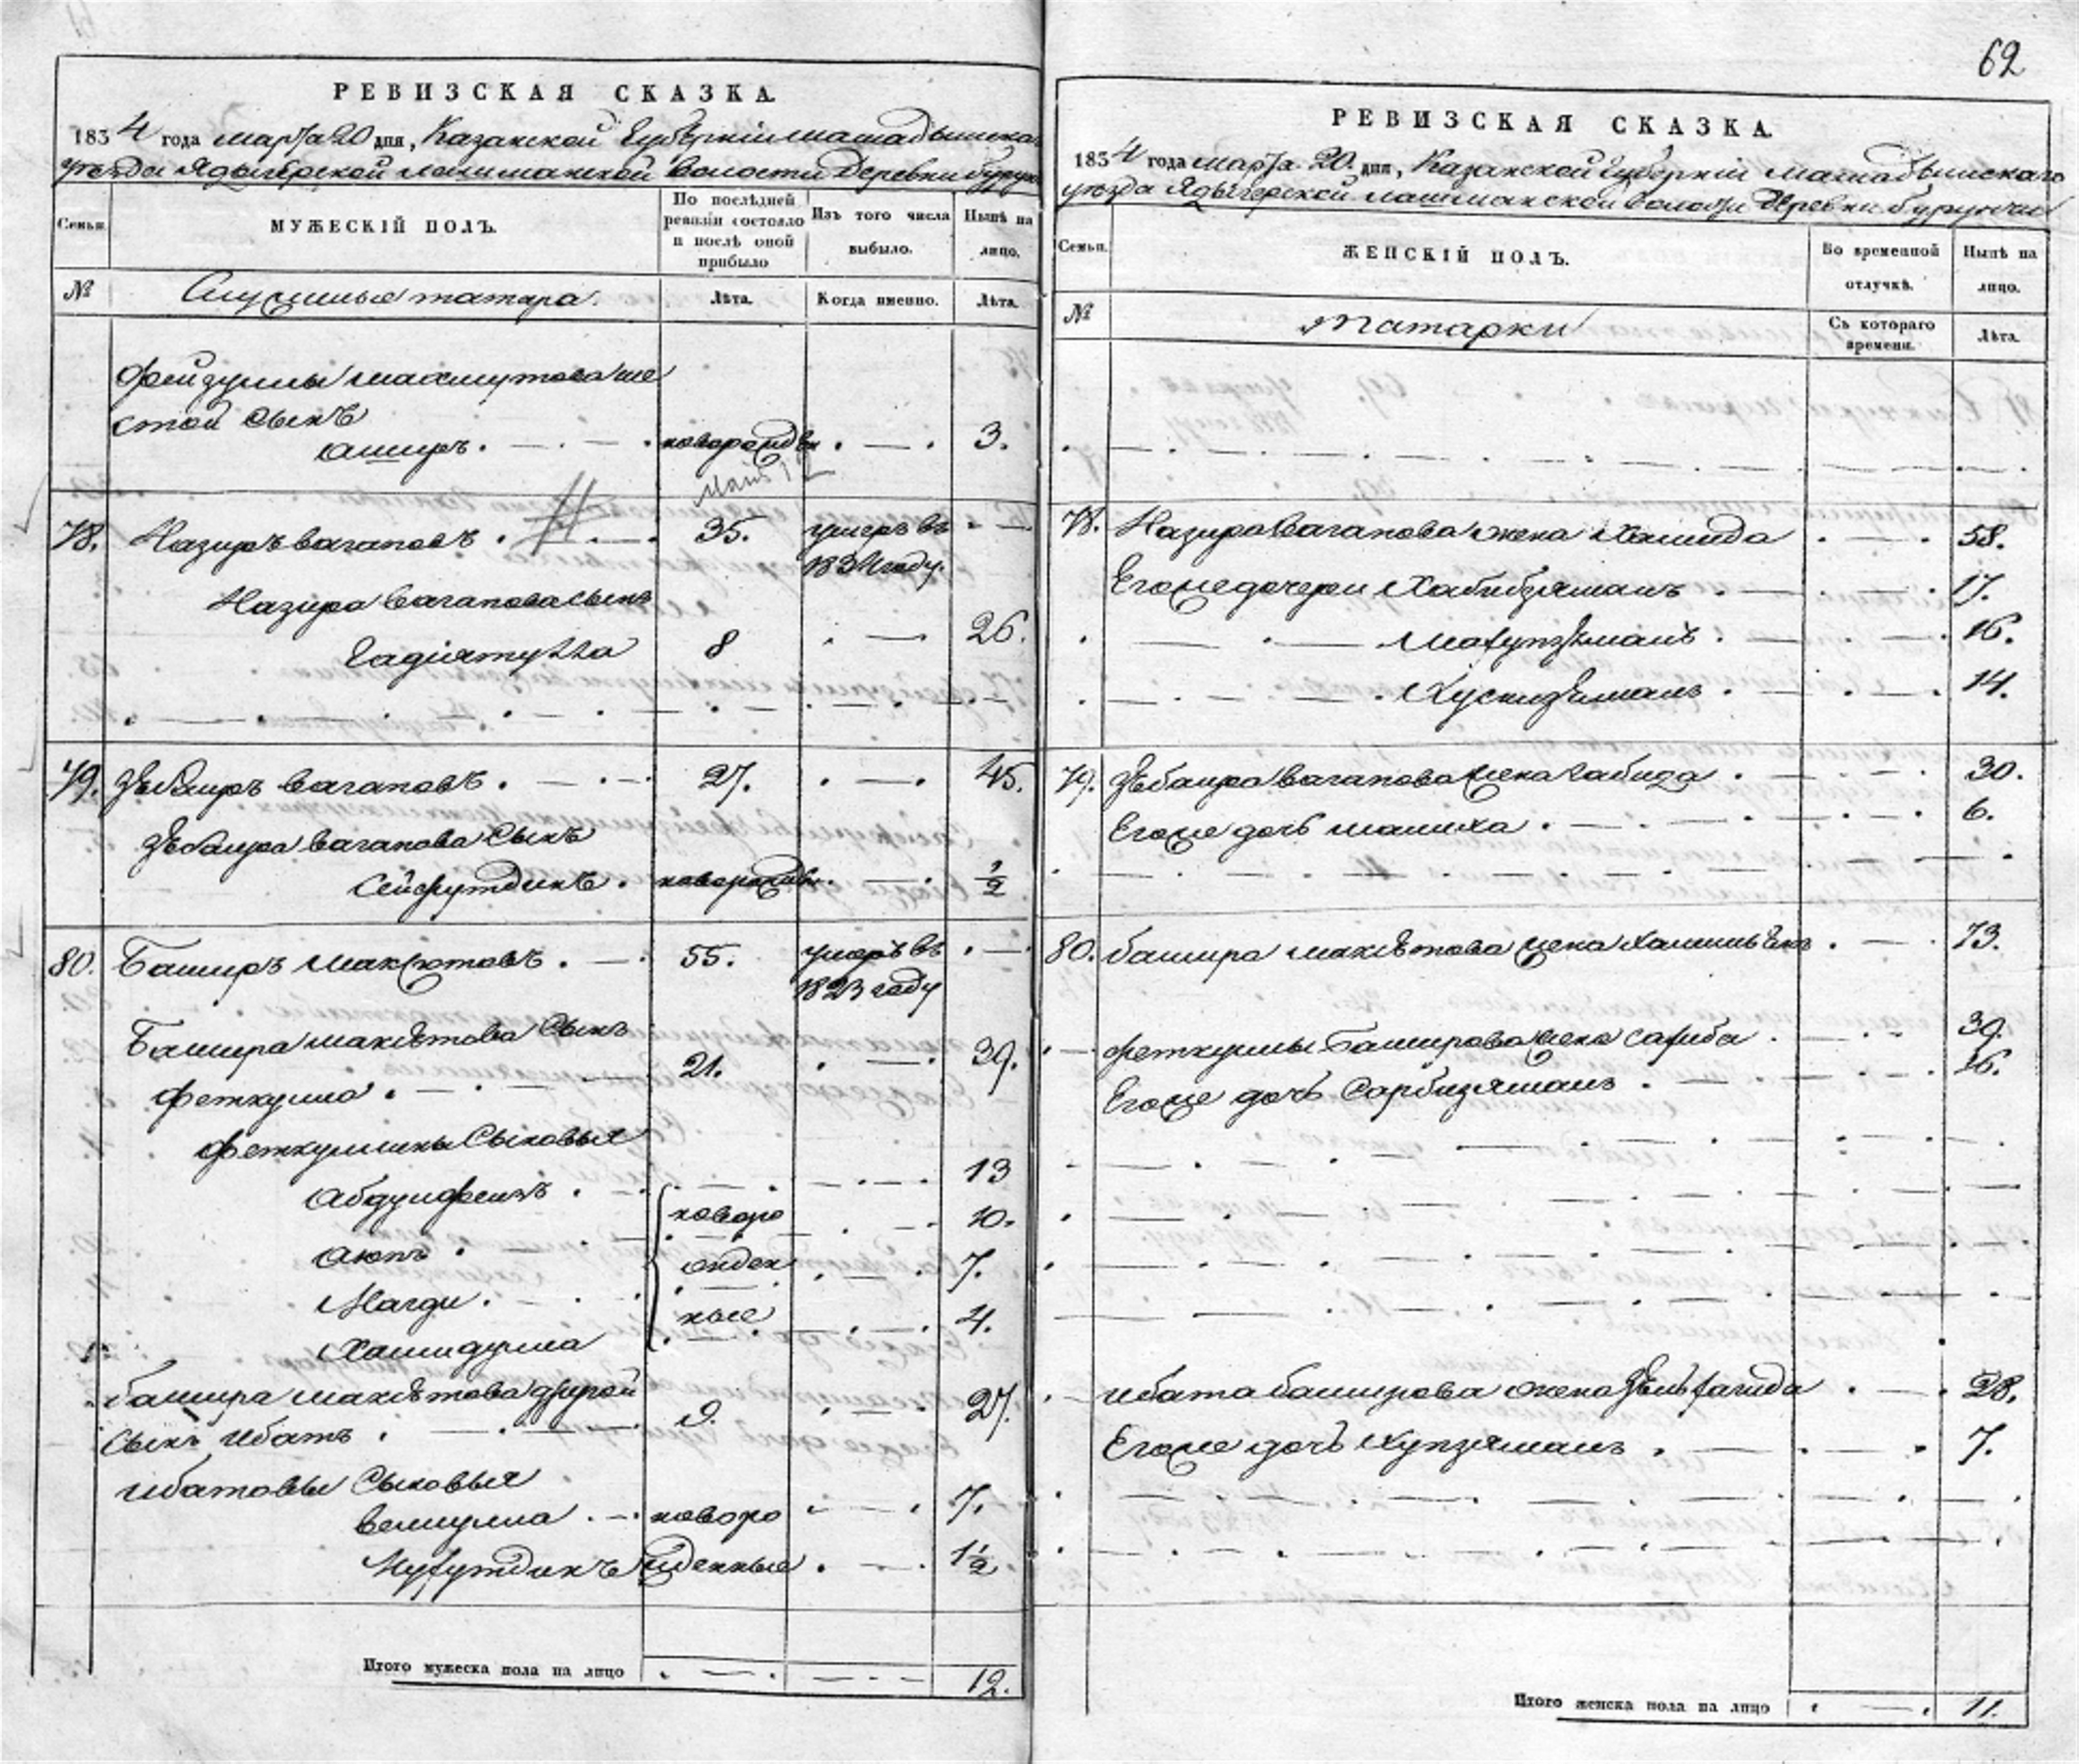 62
РЕВИЗСКАЯ СКАЗКА.
1834 года марта 20 дня, Казанской Губернiи Мамадышскаго
уезда Ядыгерской лашманской волости Деревни Бурунчи
Семьи. МУЖЕСКIЙ ПОЛЪ. По послѣдней ревизiи состояло и послѣ оной прибыло Изъ того числа выбыло. Нынѣ на лицо.
№ Служилые татара. Лѣта. Когда именно. Лѣта.
Фейзуллы Махмутова ше
стой сынъ
Аширъ . новорожден 3.
маiя 12
78. Назиръ Вагаповъ . 35. умеръ въ
1834 году.
Назира Вагапова сынъ
Гадiятулла 8 26.
79. Зѣбаиръ Вагаповъ . 27. 45.
Зѣбаира Вагапова сынъ
Сейфутдинъ . новорожден 1/2
80. Баширъ Максютовъ . 55. умеръ въ
1823 году
Башира Максѣтова сынъ
Феткулла . 21. 39.
Феткуллины сыновья
Абдулфеизъ . 13
Аюпъ . новоро 10.
Магди . жден 7.
Хамидулла ные 4.
Башира Максѣтова другой
сынъ Ибатъ . 9. 27.
Ибатовы сыновья
Велиулла . новоро 7.
Нуфутдинъ жденные . 1 1/2
Итого мужеска пола на лицо 12.
РЕВИЗСКАЯ СКАЗКА.
1834 года марта 20 дня, Казанской Губернiи Мамадышскаго
уезда Ядыгерской лашманской волости Деревни Бурунчи
Семьи. ЖЕНСКIЙ ПОЛЪ. Во временной отлучкѣ. Нынѣ на лицо.
№ Татарки Съ котораго времени. Лѣта.
78. Назира Вагапова жена Хамида 58.
Егоже дочери Хабибзямалъ . 17.
Махупзямалъ . 16.
Хуснизямалъ . 14.
79. Зѣбаира Вагапова жена Габида . 30.
Егоже дочь Малиха . 6.
80. Башира Максѣтова жена 73.
Феткуллы Баширова жена Сахиба . 39.
Егоже дочь Сарбизямалъ . 16.
Ибата Баширова жена 28.
Егоже дочь Хупзямалъ . 7.
Итого женска пола на лицо 11.